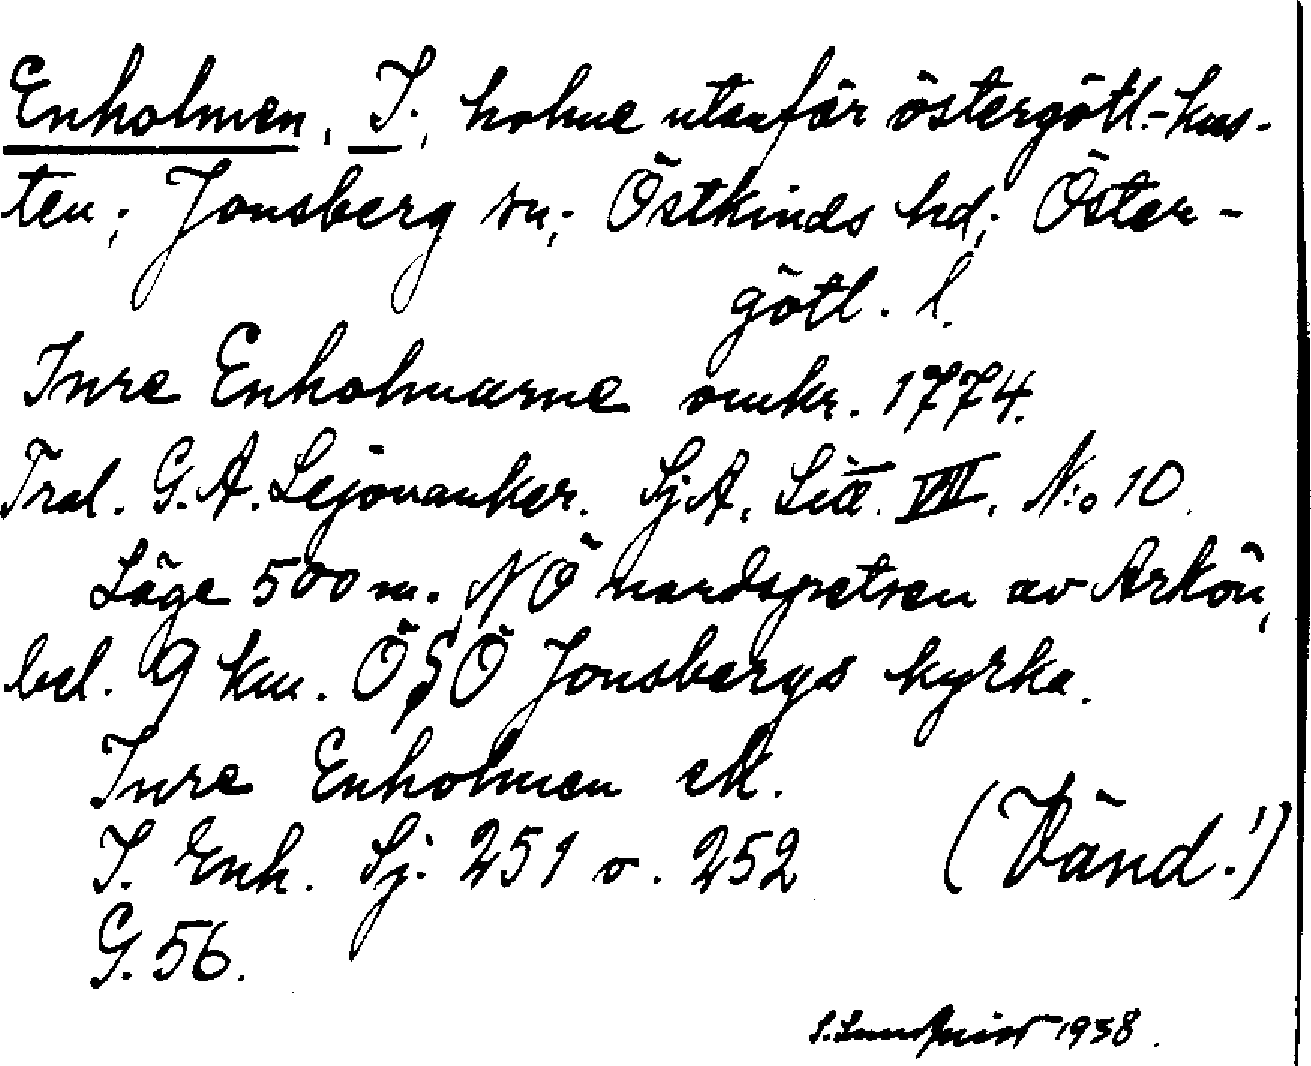 Enholmen, I., holme utanför östergötl.-kus-
ten; Jonsberg sn; Östkinds hd; Öster-
götl. l.
Inre Enholmarne omkr. 1774.
Tral. G. A. Lejonanker. SjA, Litt. VIII. N:o 10.
Läge 500 m. NÖ nordspetsen av Arkön,
bel. 9 km. ÖSÖ Jonsbergs kyrka.
Inre Enholmen eK.
I. Enh. Sj. 251 o. 252 (Vänd!)
G. 56.
S. Lundqvist 1938.